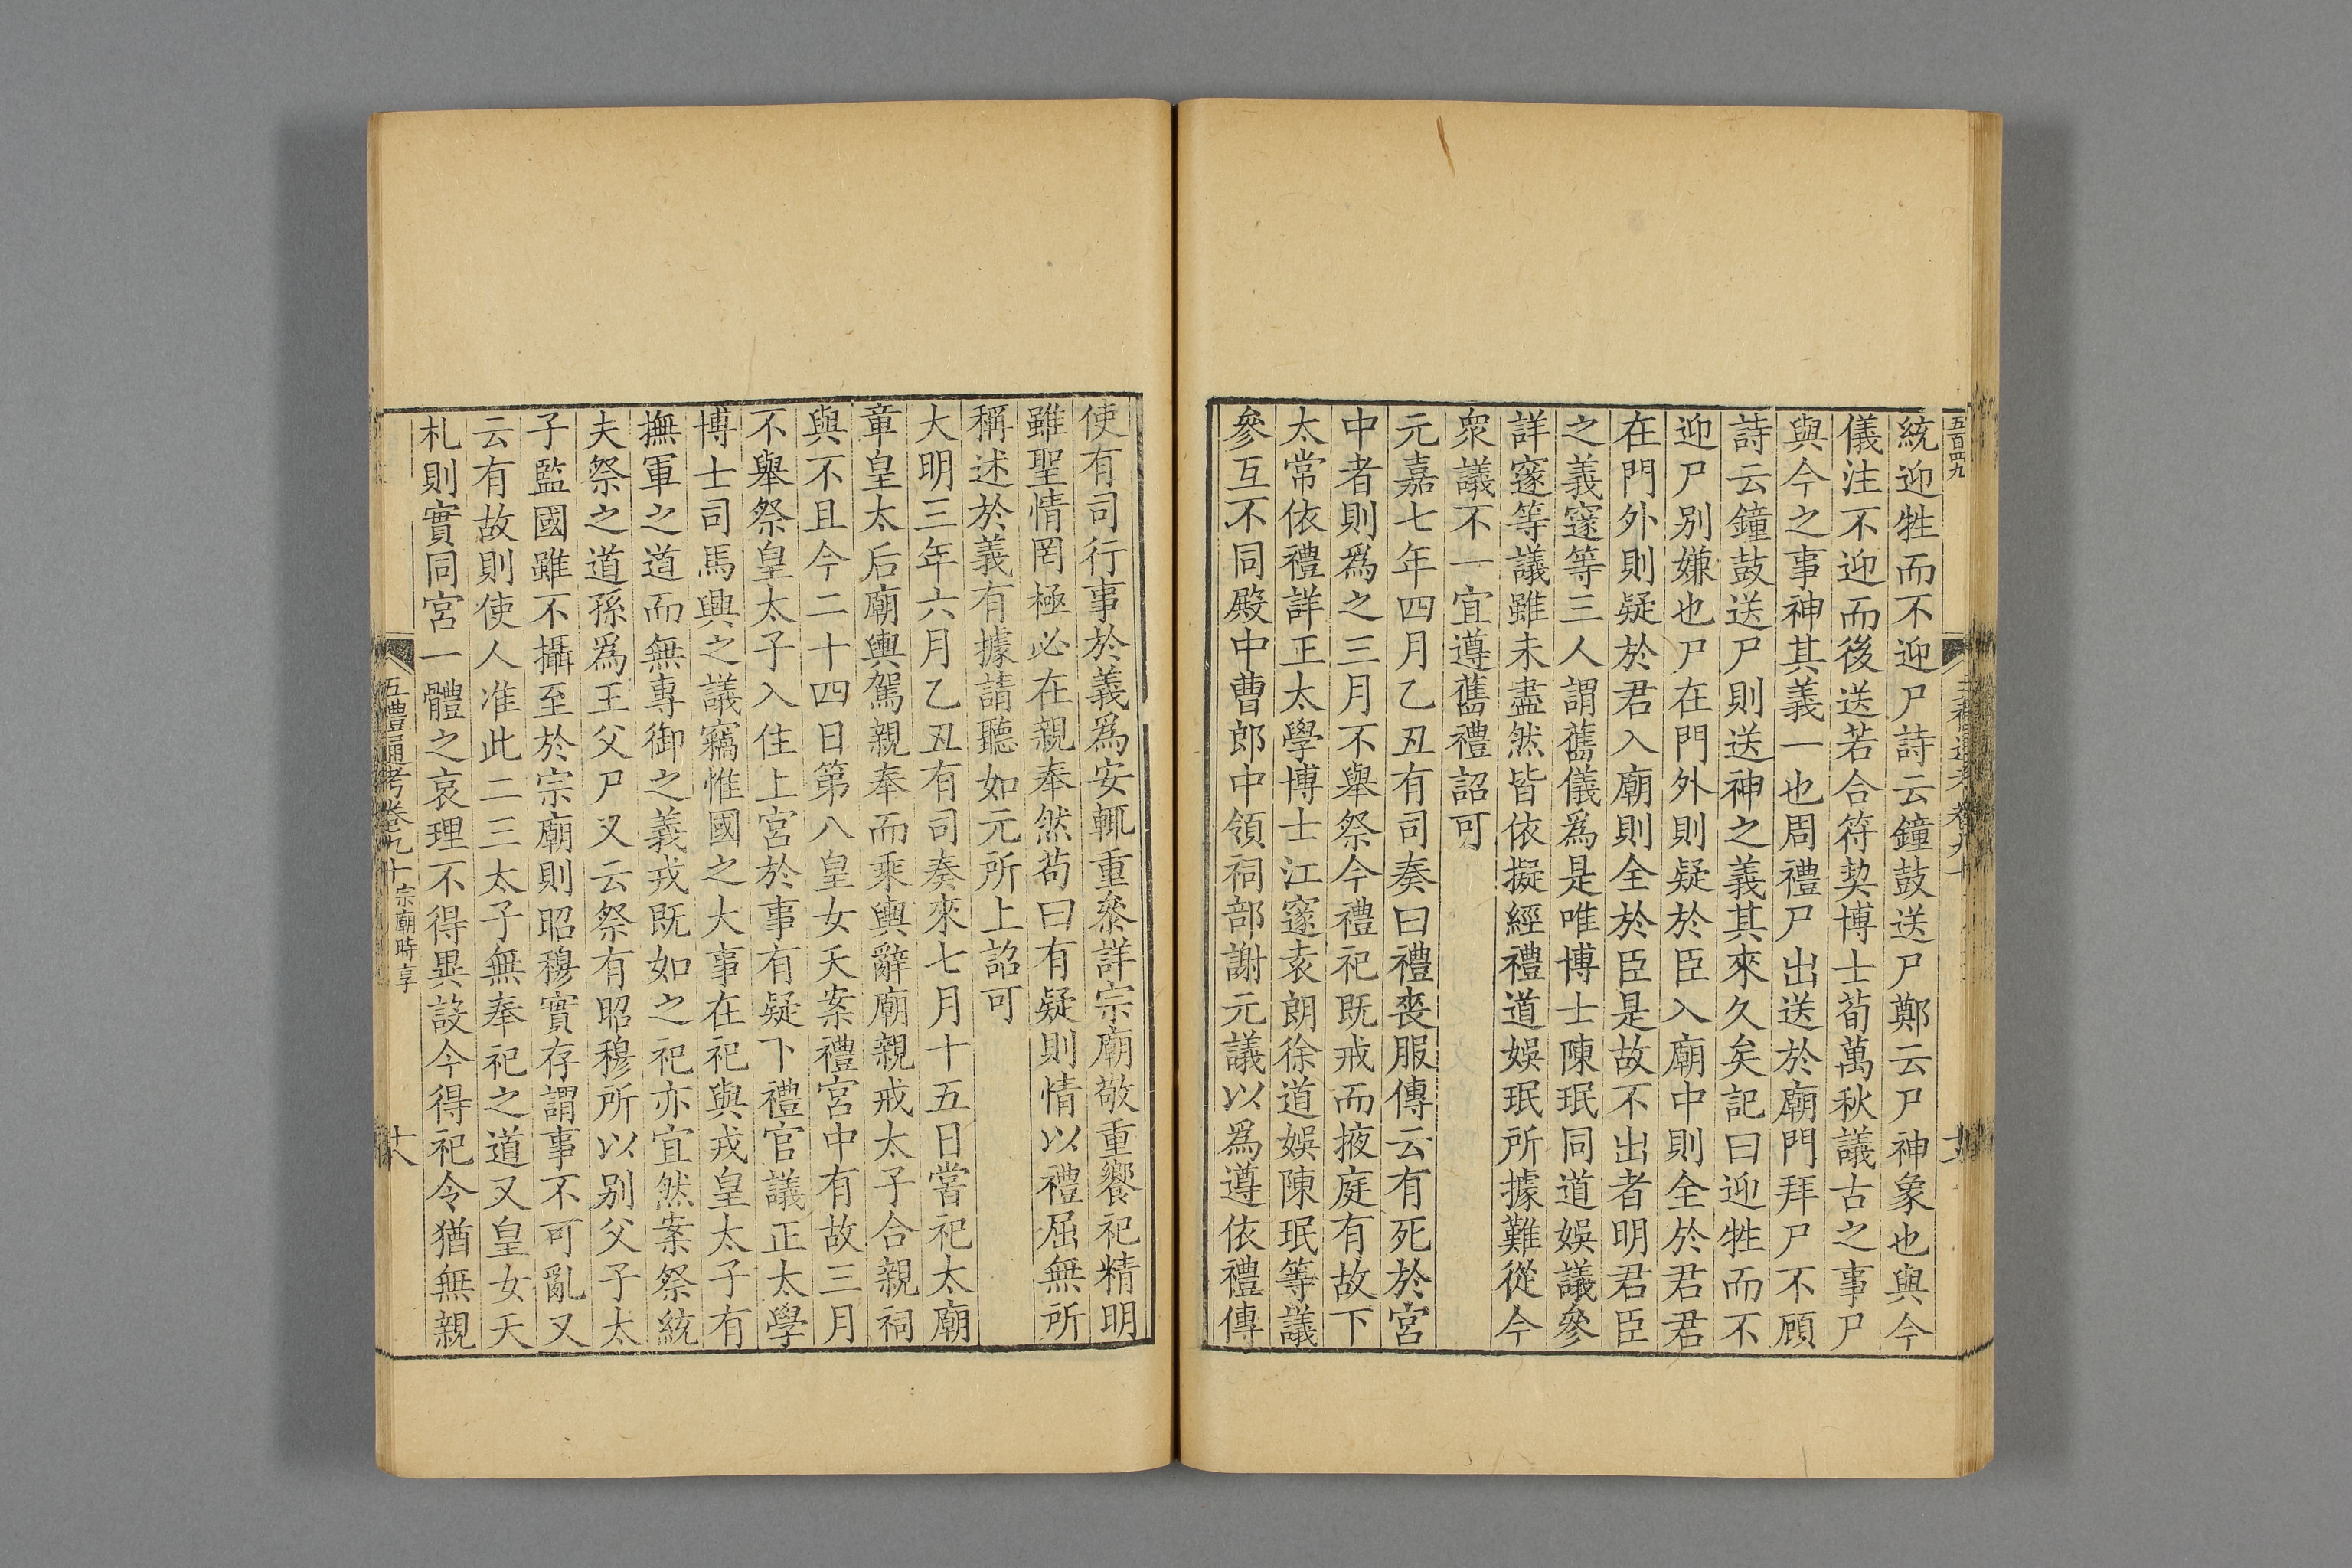 五百四九
統迎牲而不迎尸詩云鐘鼓送尸鄭云尸神象也與今
儀注不迎而後送若合符契博士荀萬秋議古之事尸
與今之事神其義一也周禮尸出送於廟門拜尸不顧
詩云鐘鼓送尸則送神之義其來久矣記曰迎牲而不
迎尸別嫌也尸在門外則疑於臣入廟中則全於君君
在門外則疑於君入廟則全於臣是故不出者明君臣
之義邃等三人謂舊儀爲是唯博士陳珉同道娛議參
詳邃等議雖未盡然皆依擬經禮道娛珉所據難從今
衆議不一宜遵舊禮詔可
元嘉七年四月乙丑有司奏曰禮喪服傳云有死於宮
中者則爲之三月不舉祭今禮祀既戒而掖庭有故下
太常依禮詳正太學博士江邃袁朗徐道娛陳珉等議
參互不同殿中曹郎中領祠部謝元議以爲遵依禮傳
使有司行事於義爲安輒重參詳宗廟敬重饗祀精明
雖聖情罔極必在親奉然苟曰有疑則情以禮屈無所
稱述於義有據請聽如元所上詔可
大明三年六月乙丑有司奏來七月十五日嘗祀太廟
章皇太后廟輿駕親奉而乘輿辭廟親戒太子合親祠
與不且今二十四日第八皇女夭案禮宮中有故三月
不舉祭皇太子入住上宮於事有疑下禮官議正太學
博士司馬興之議竊惟國之大事在祀與戎皇太子有
撫軍之道而無專御之義戎既如之祀亦宜然案祭統
夫祭之道孫爲王父尸又云祭有昭穆所以別父子太
子監國雖不攝至於宗廟則昭穆實存謂事不可亂又
云有故則使人准此二三太子無奉祀之道又皇女夭
札則實同宮一體之哀理不得異設今得祀令猶無親
五禮通考卷九十 宗廟時享 十八